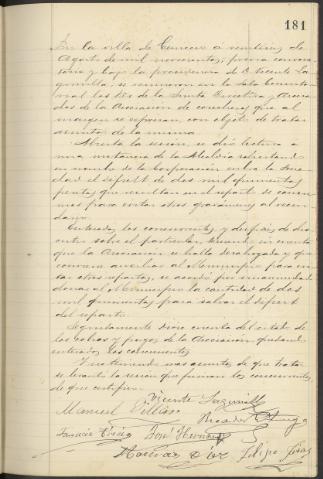 181
En la villa de Canicero a veintiseis de
Agosto de mil novecientos, previa convoca
toria y bajo la presidencia de D. Vicente La
gunilla, se reunieron en la Sala Consisto
rial los Sres de la Junta Directiva, Asocia
dos de la Asociacion de cosecheros que al
margen se expresan con objeto de tratar
asuntos de la misma
Abierta la sesion se dió lectura á
una instancia de la Alcaldia solicitando
en nombre de la Corporacion
el deficit de dos mil quinientas
pesetas que resultan en el reparto de consu
mos para evitar otros gravamenes al vecin
dario.
Enterados los concurrentes y despues de dis
cutir sobre el particular, teniendo en cuenta
que la Asociacion se halla desahogada y que
conviene auxiliar al Municipio para evi
tar otro reparto, se acordó por unanimidad
donar al Municipio la cantidad de dos
mil quinientas para salvar el deficit
del reparto.
Seguidamente dióse cuenta del estado de
los cobros y pagos de la Asociacion quedando
enterados los concurrentes
Y no teniendo mas asuntos de que tratar
se levantó la sesion que firman los concurrentes
de que certifico.
Vicente
Manuel Ricardo
José Hernand
Felipe